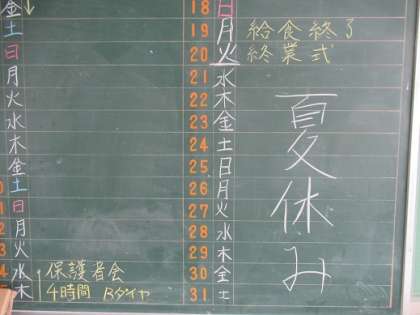 金
土
日
月
火
水
木
金
土
日
月
火
水 保護者会
木 4時間 Bダイヤ
18 日
19 月 給食終了
20 火 終業式
21 水
22 木
23 金
24 土
25 日
26 月
27 火
28 水
29 木
30 金
31 土
夏休み